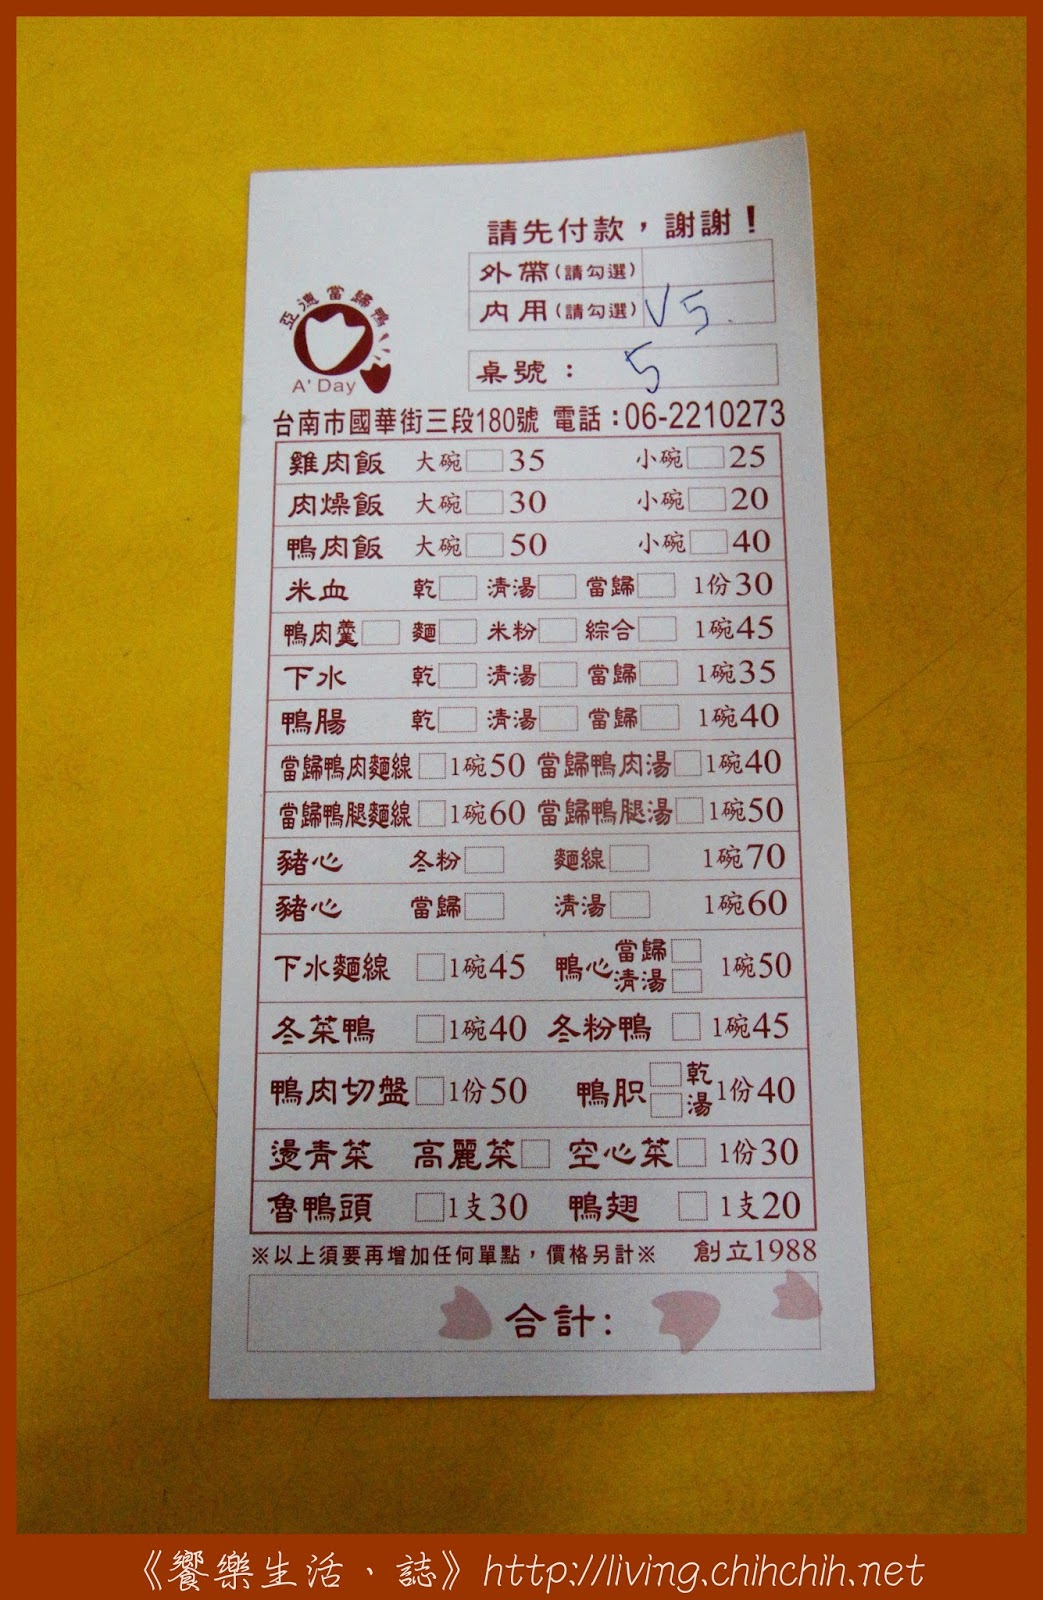 請先付款，謝謝！
外帶(請勾選)
內用(請勾選) V 5
桌號： 5
亞德當歸鴨
A' Day
台南市國華街三段180號 電話：06-2210273
雞肉飯 大碗 35 小碗 25
肉燥飯 大碗 30 小碗 20
鴨肉飯 大碗 50 小碗 40
米血 乾 清湯 當歸 1份30
鴨肉羹 麵 米粉 綜合 1碗45
下水 乾 清湯 當歸 1碗35
鴨腸 乾 清湯 當歸 1碗40
當歸鴨肉麵線 1碗50 當歸鴨肉湯 1碗40
當歸鴨腿麵線 1碗60 當歸鴨腿湯 1碗50
豬心 冬粉 麵線 1碗70
豬心 當歸 清湯 1碗60
下水麵線 1碗45 鴨心 當歸 清湯 1碗50
冬菜鴨 1碗40 冬粉鴨 1碗45
鴨肉切盤 1份50 鴨胗 乾 湯 1份40
燙青菜 高麗菜 空心菜 1份30
魯鴨頭 1支30 鴨翅 1支20
※以上須要再增加任何單點，價格另計※ 創立1988
合計:
《饗樂生活、誌》http://living.chihchih.net